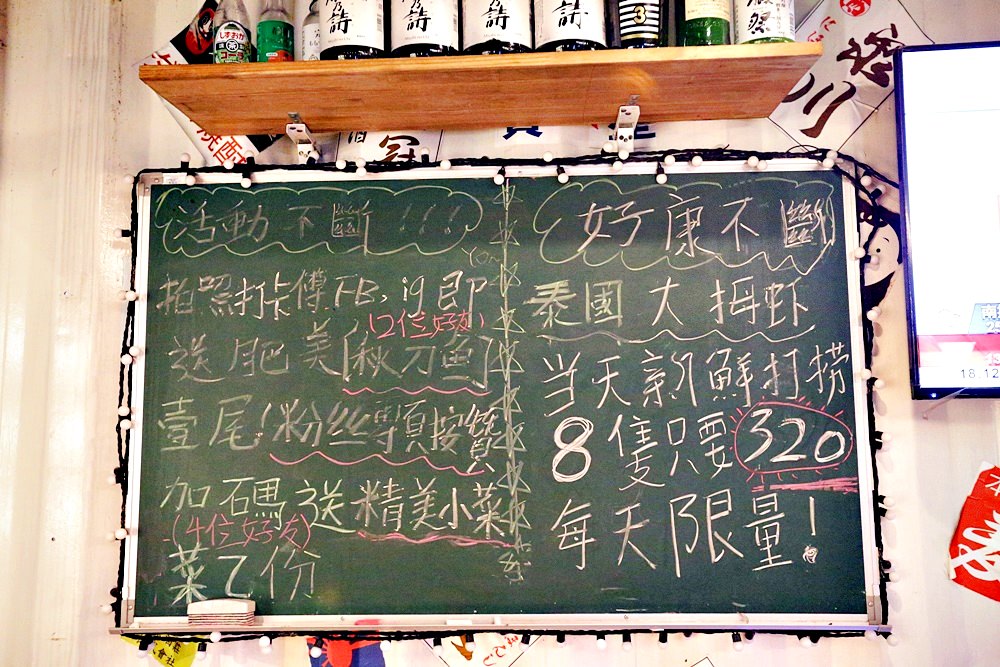 活動不斷!!!
拍照打卡傳FB,ig即
(2位好友)
送肥美[秋刀魚]
壹尾!粉丝專頁按讚
加碼送精美小菜
(4位好友)
菜乙份
好康不斷
泰國大拇虾
当天新鮮打捞
8隻只要320
每天限量!
冠
3
18.12